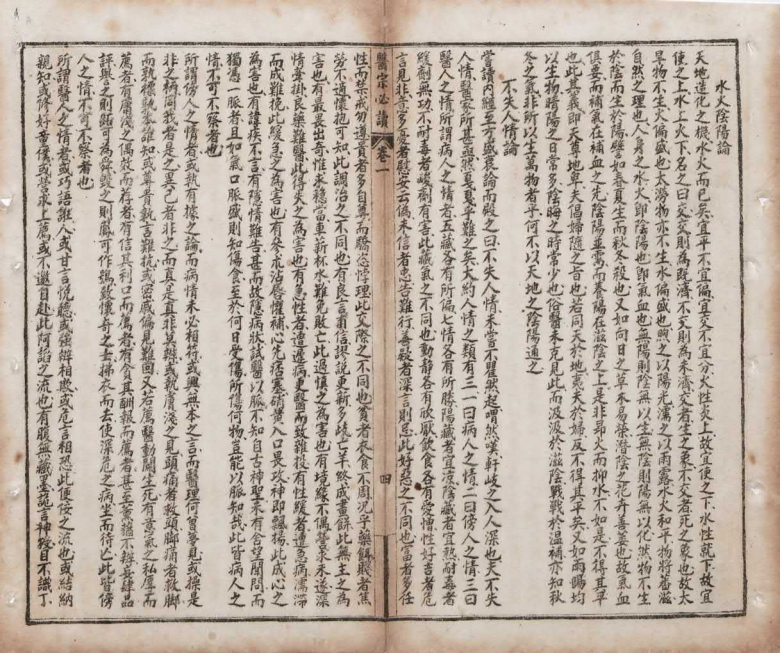 水火陰陽論
天地造化之機水火而已矣宜平不宜偏宜交不宜分火性炎上故宜使之下水性就下故宜
使之上水上火下名之曰交交則為既濟不交則為未濟交者生之象不交者死之象也故太
旱物不生火偏盛也太澇物亦不生水偏盛也煦之以陽光濡之以雨露水火和平物將蕃滋
自然之理也人身之水火即陰陽也即氣血也無陽則陰無以生無陰則陽無以化然物不生
於陰而生於陽譬如春夏生而秋冬殺也又如向日之草木易榮潛陰之花卉善萎也故氣血
俱要而補氣在補血之先陰陽並需而養陽在滋陰之上是非昂火而抑水不如是不得其平
也此其義即天尊地卑夫倡婦隨之旨也若同天於地夷夫於婦反不得其平矣又如雨暘均
以生物晴陽之日常多陰晦之時常少也俗醫未克見此而汲汲於滋陰戰戰於溫補亦知秋
冬之氣非所以生萬物者乎何不以天地之陰陽通之
不失人情論
嘗讀內經至方盛衰論而殿之曰不失人情未嘗不瞿然起喟然嘆軒岐之入人深也夫不失
人情醫家所甚亟然戛戛乎難之矣大約人情之類有三一曰病人之情二曰傍人之情三曰
醫人之情所謂病人之情者五藏各有所偏七情各有所勝陽藏者宜涼陰藏者宜熱耐毒者
緩劑無功不耐毒者峻劑有害此藏氣之不同也動靜各有欣厭飲食各有愛憎性好吉者危
言見非意多憂者慰安云偽未信者忠告難行善疑者深言則忌此好惡之不同也富者多任
醫宗必讀 卷一 四
性而禁戒勿遵貴者多自尊而驕恣悖理此交際之不同也貧者衣食不周況乎藥餌賤者焦
勞不適懷抱可知此調治之不同也有良言甫信謬說更新多歧亡羊終成畫餅此無主之為
害也有最畏出奇惟求穩當車薪杯水難免敗亡此過慎之為害也有境緣不偶營求未遂深
情牽掛良藥難醫此得失之為害也有急性者遭遲病更醫而致雜投有性緩者遭急病濡滯
而成難挽此緩急之為害也有參朮沾唇懼補心先痞塞硝黃入口畏攻神即飄揚此成心之
為害也有諱疾不言有隱情難告甚而故隱病狀試醫以脈不知自古神聖未有舍望聞問而
獨憑一脈者且如氣口脈盛則知傷食至於何日受傷所傷何物豈能以脈知哉此皆病人之
情不可不察者也
所謂傍人之情者或執有據之論而病情未必相符或興無本之言而醫理何曾夢見或操是
非之柄同我者是之異己者非之而真是真非莫辨或執膚淺之見頭痛者救頭腳痛者救腳
而孰標孰本誰知或尊貴執言難抗或密戚偏見難回又若薦醫動關生死有意氣之私厚而
薦者有庸淺之偶效而薦者有信其利口而薦者有食其酬報而薦者甚至薰蕕不辨妄肆品
評譽之則跖可為舜毀之則鳳可作鴞致懷奇之士拂衣而去使深危之病坐而待亡此皆傍
人之情不可不察者也
所謂醫人之情者或巧語誑人或甘言悅聽或強辯相欺或危言相恐此便佞之流也或結納
親知或修好童僕或營求上薦或不邀自赴此阿諂之流也有腹無藏墨詭言神授目不識丁